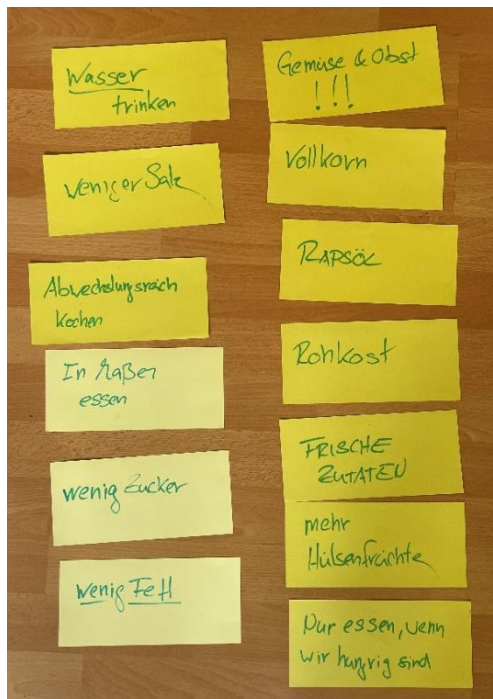 Wasser
trinken
weniger Salz
Abwechslungsreich
kochen
In Maßen
essen
wenig Zucker
wenig Fett
Gemüse & Obst
!!!
Vollkorn
RAPSÖL
Rohkost
FRISCHE
ZUTATEN
mehr
Hülsenfrüchte
Nur essen, wenn
wir hungrig sind